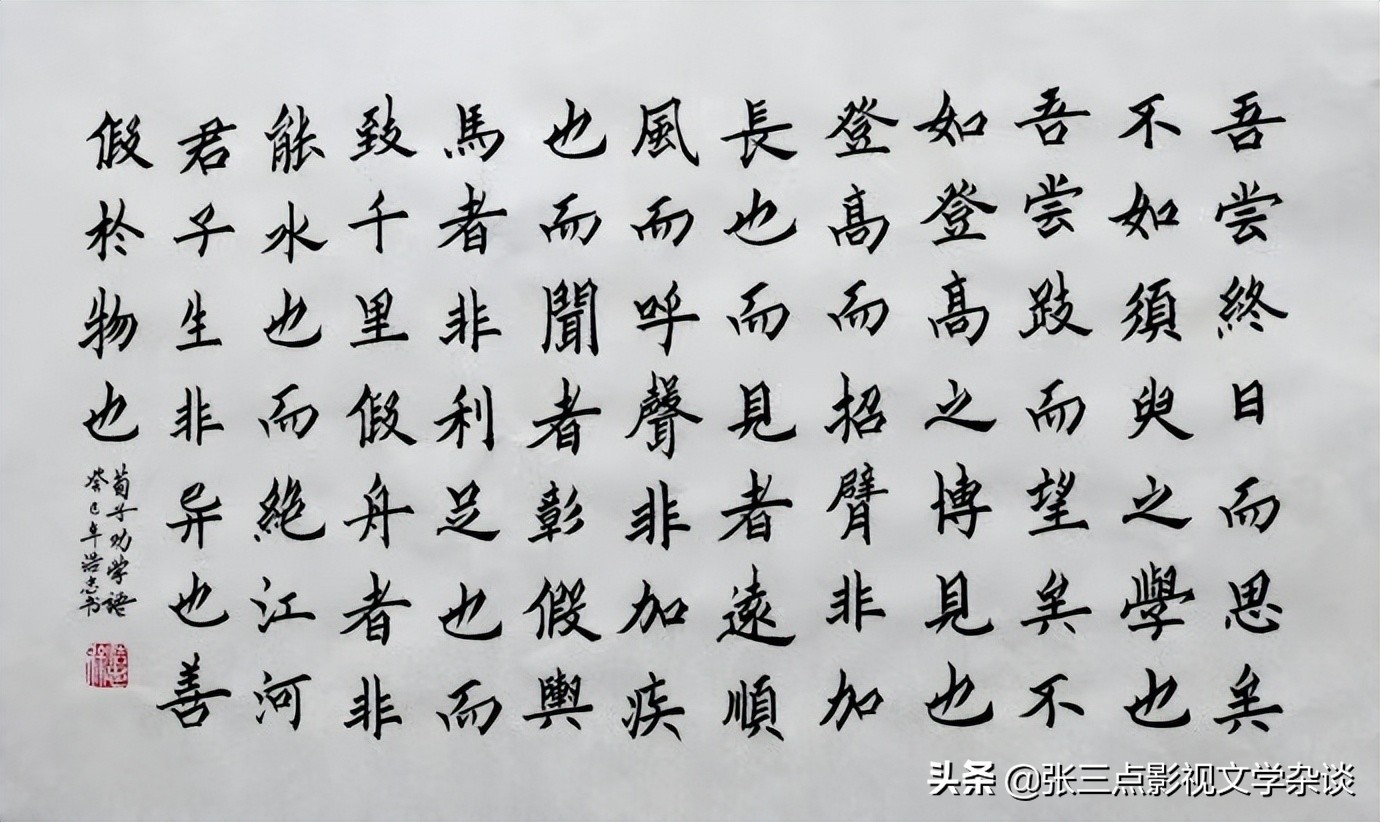 吾尝終日而思矣
不如須臾之學也
吾尝跂而望矣不
如登高之博見也
登髙而招臂非加
長也而見者遠順
風而呼聲非加疾
也而聞者彰假輿
馬者非利足也而
致千里假舟者非
能水也而絶江河
君子生非异也善
假於物也
荀子劝学語
癸巳年浩忠书
头条 @张三点影视文学杂谈